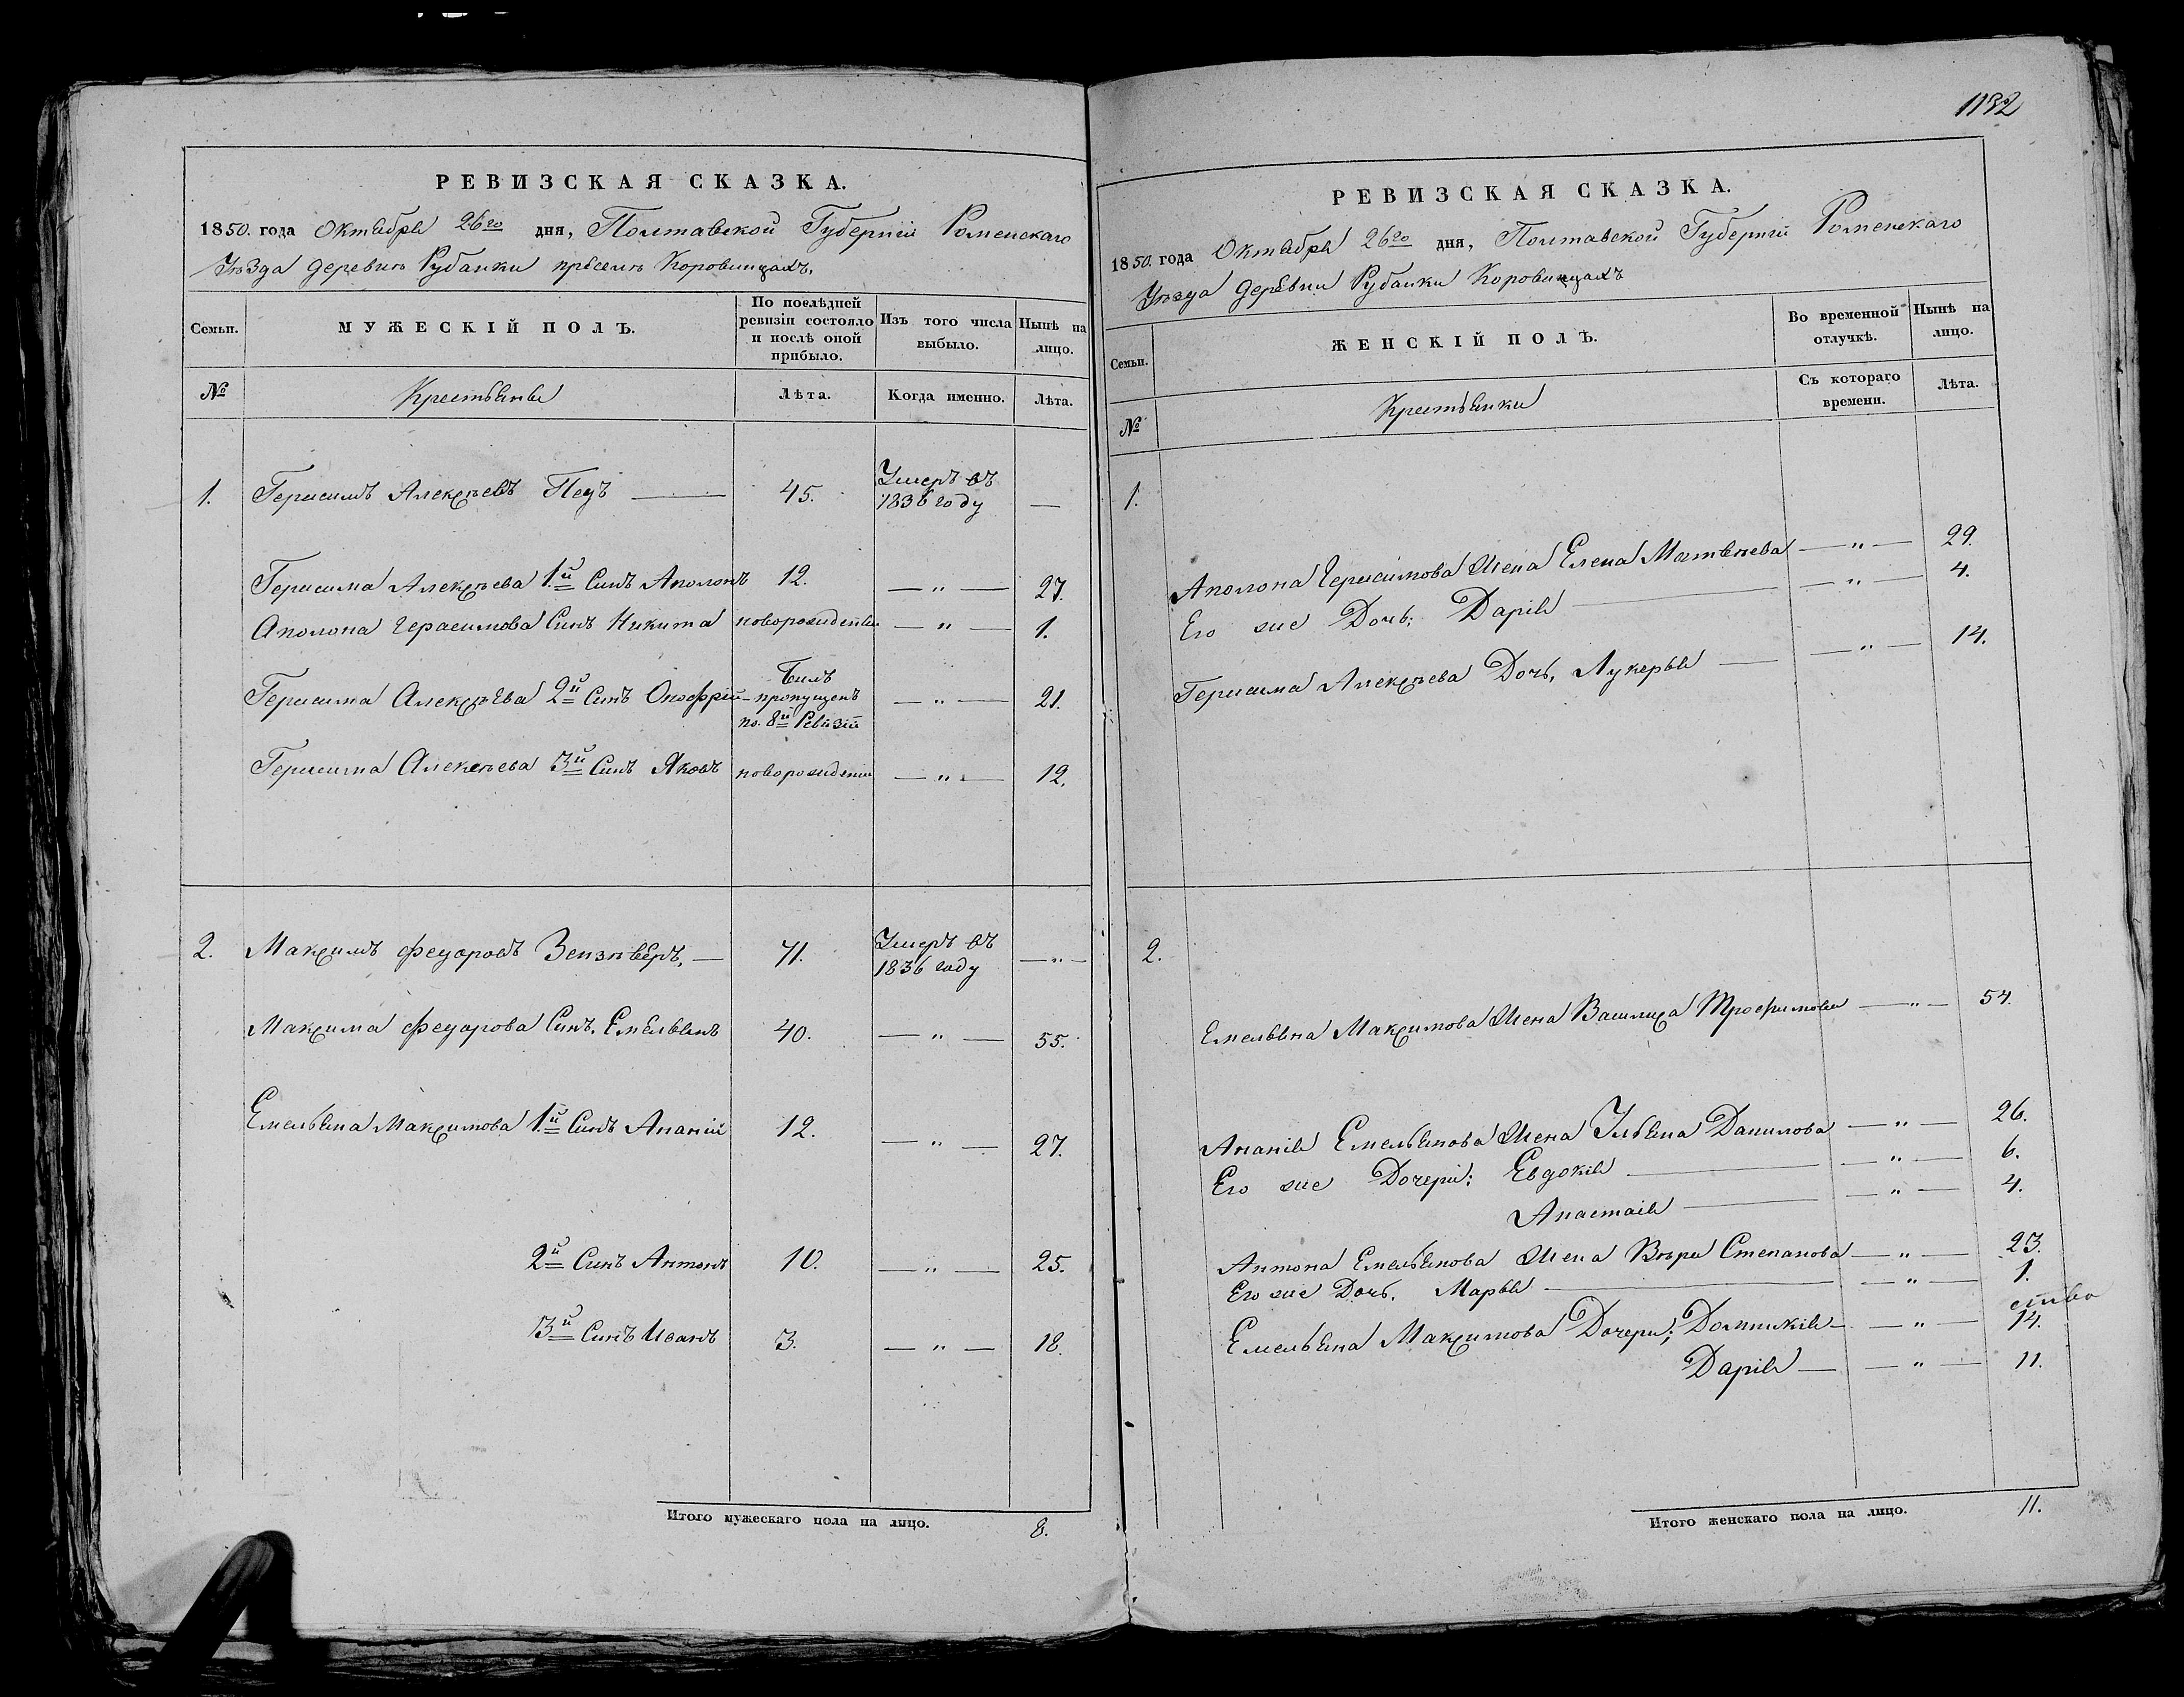 1132
РЕВИЗСКАЯ СКАЗКА.
1850. года Октября 26го дня, Полтавской Губерніи Роменскаго
Уѣзда деревни Рубанки Коровинцахъ.
Семьи.
МУЖЕСКІЙ ПОЛЪ.
По послѣдней ревизіи состояло и послѣ оной прибыло.
Изъ того числа выбыло.
Нынѣ на лицо.
№
Крестьяне
Лѣта.
Когда именно.
Лѣта.
1. Герасимъ Алексѣевъ 45. Умеръ въ 1836 году —
Герасима Алексѣева 1й Синъ Аполонъ 12. — „ — 27.
Аполона Герасимова Синъ Никита новорожденъ — „ — 1.
Герасима Алексѣева 2й Синъ Онофрій Билъ пропущенъ по 8й Ревизіи — „ — 21.
Герасима Алексѣева 3й Синъ Яковъ новорожденъ — „ — 12.
2. Максимъ Федоровъ — 71. Умеръ въ 1836 году — „ —
Максима Федорова Синъ, Емельянъ 40. — „ — 55.
Емельяна Максимова 1й Синъ Ананій 12. — „ — 27.
2й Синъ Антонъ 10. — „ — 25.
3й Синъ Иванъ 3. — „ — 18.
Итого мужескаго пола на лицо. 8.
РЕВИЗСКАЯ СКАЗКА.
1850. года Октября 26го дня, Полтавской Губерніи Роменскаго
Уѣзда деревни Рубанки Коровинцахъ
Семьи.
ЖЕНСКІЙ ПОЛЪ.
Во временной отлучкѣ.
Нынѣ на лицо.
№
Крестьянки
Съ котораго времени.
Лѣта.
1.
Аполона Герасимова Жена Елена Матвѣева — „ — 29.
Его же Дочь; Дарія — „ — 4.
Герасима Алексѣева Дочь, Лукерья — „ — 14.
2.
Емельяна Максимова Жена Василиса Трофимова — „ — 54.
Ананія Емельянова Жена Ульяна Данилова — „ — 26.
Его же Дочери; Евдокія — „ — 6.
Анастасія — „ — 4.
Антона Емельянова Жена Вѣра Степанова — „ — 23.
Его же Дочь, Марья — „ — 1.
Емельяна Максимова Дочери; Домникія — „ — 14.
Дарія — „ — 11.
Итого женскаго пола на лицо. 11.